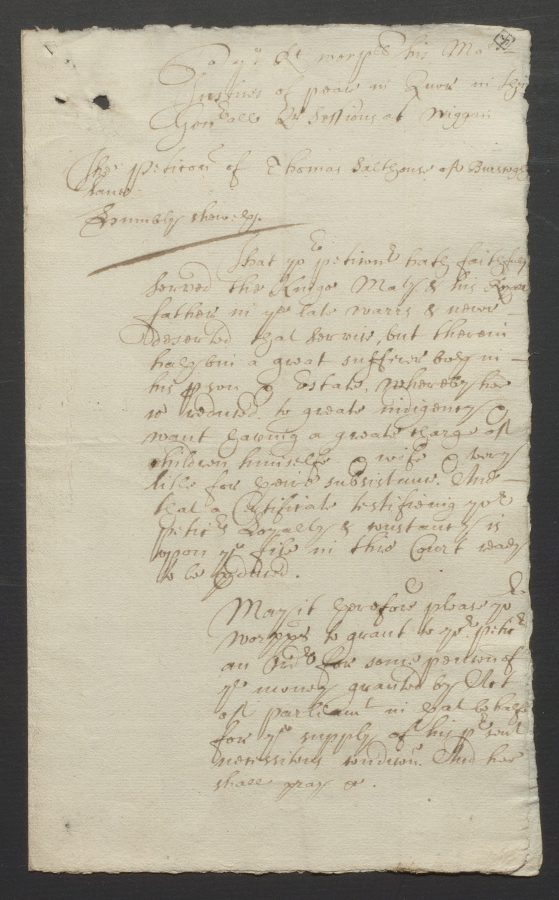 To ye Rt worspll his Maties
Justices of peace in Quor in their
Gen'all Qr Sessions at Wiggan
The Peticon of Thomas Salthouse of
Humbly sheweth.
That yor peticonr hath faithfully
served the Kings Maty & his Royall
father in ye late warrs & never
deserted that service, but therein
hath bin a great sufferer both in
his pson & Estate, whereby hee
is reduced to greate indigency &
want haveing a greate charge of
children himselfe & wife & very
litle for theire subsistance. And
that a Certificate testifieing yor
peticrs Loyalty & constancy is
upon ye file in this Court ready
to be pduced.
May it therefore please yor
worspps to grant to yor peticr
an Ordr for some pencon of
ye money granted by Act
of parliamt in that behalfe
for ye supply of his prsent
necessitous condicon. And hee
shall pray &c.